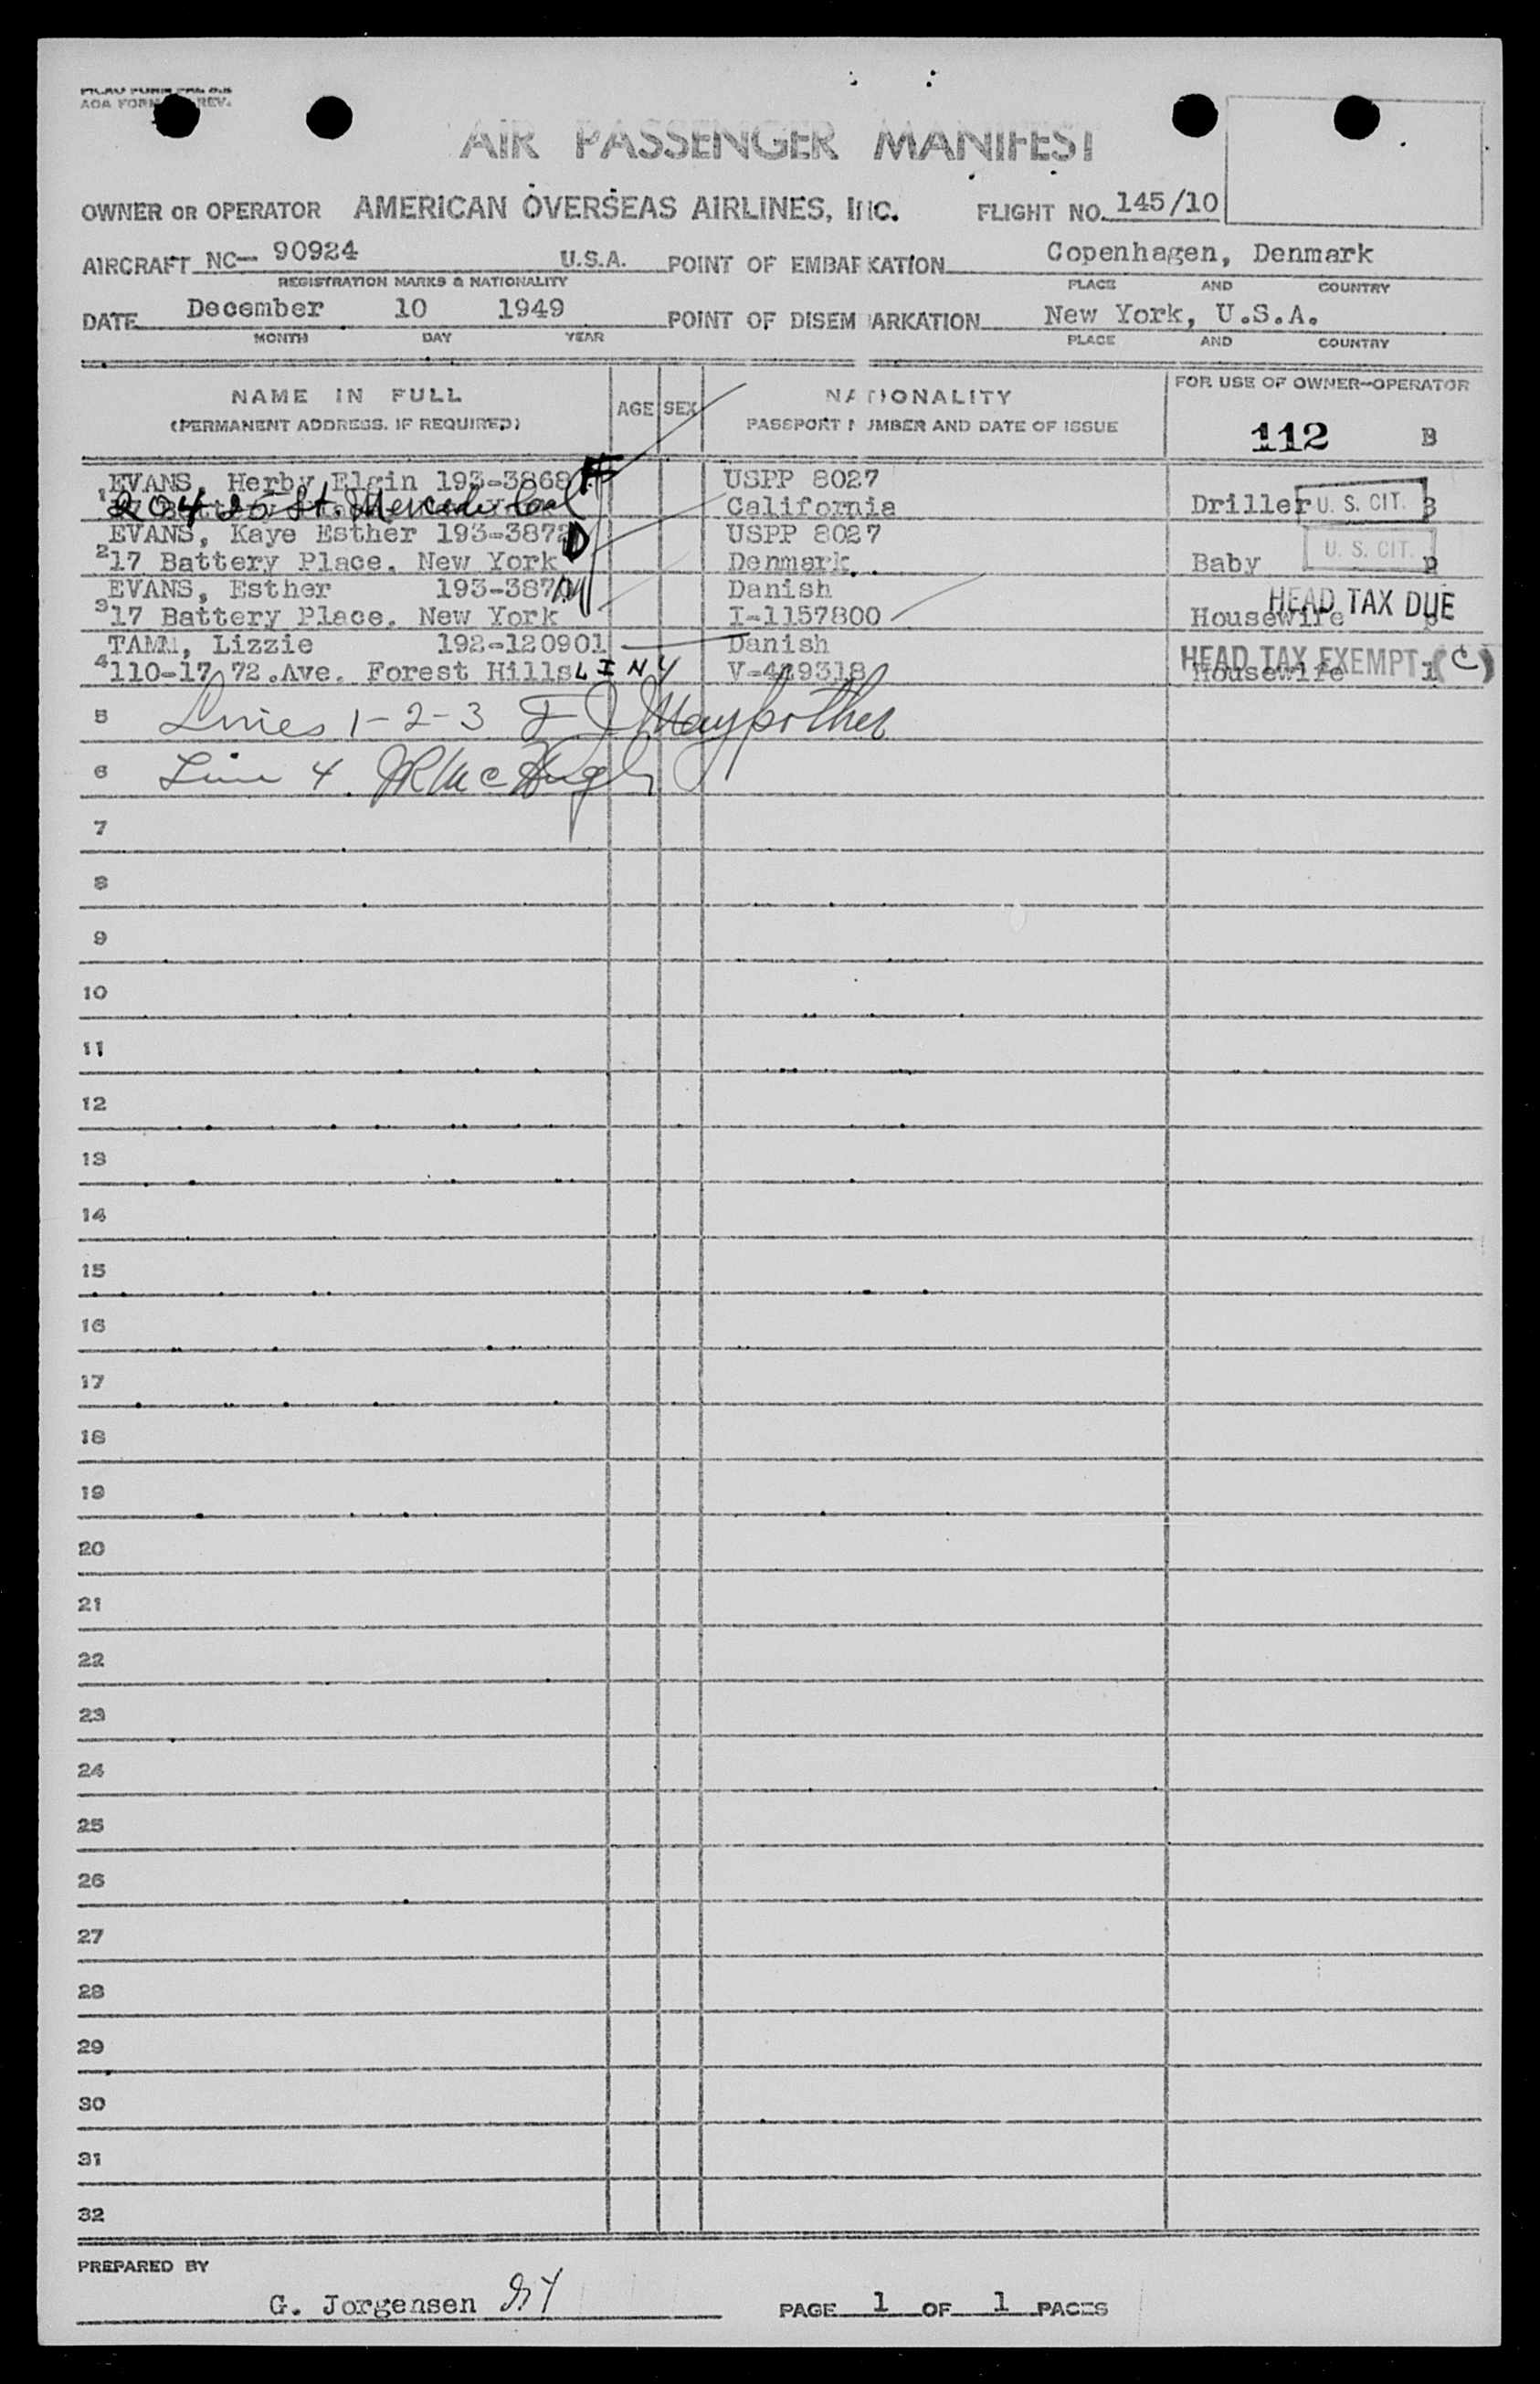 AOA FORM REV.
AIR PASSENGER MANIFEST
OWNER OR OPERATOR AMERICAN OVERSEAS AIRLINES, INC. FLIGHT NO. 145/10
AIRCRAFT NC- 90924 U.S.A. POINT OF EMBARKATION Copenhagen, Denmark
REGISTRATION MARKS & NATIONALITY PLACE AND COUNTRY
DATE December 10 1949 POINT OF DISEMBARKATION New York, U.S.A.
MONTH DAY YEAR PLACE AND COUNTRY
NAME IN FULL AGE SEX NATIONALITY FOR USE OF OWNER-OPERATOR
(PERMANENT ADDRESS. IF REQUIRED) PASSPORT NUMBER AND DATE OF ISSUE 112 B
EVANS, Herby Elgin 193-3868 F USPP 8027
1 204 25 St Merced Cal California Driller U. S. CIT. B
EVANS, Kaye Esther 193-3872 D USPP 8027
2 17 Battery Place. New York Denmark. Baby U. S. CIT.
EVANS, Esther 193-3870 M Danish HEAD TAX DUE
3 17 Battery Place. New York I-1157800 Housewife
TAMM, Lizzie 192-120901 Danish HEAD TAX EXEMPT (C)
4 110-17 72.Ave. Forest Hills L I N Y V-449318 Housewife 1
5 Lines 1-2-3 F J Maybother
6 Line 4. JR McHugh
7
8
9
10
11
12
13
14
15
16
17
18
19
20
21
22
23
24
25
26
27
28
29
30
31
32
PREPARED BY
G. Jorgensen PAGE 1 OF 1 PAGES